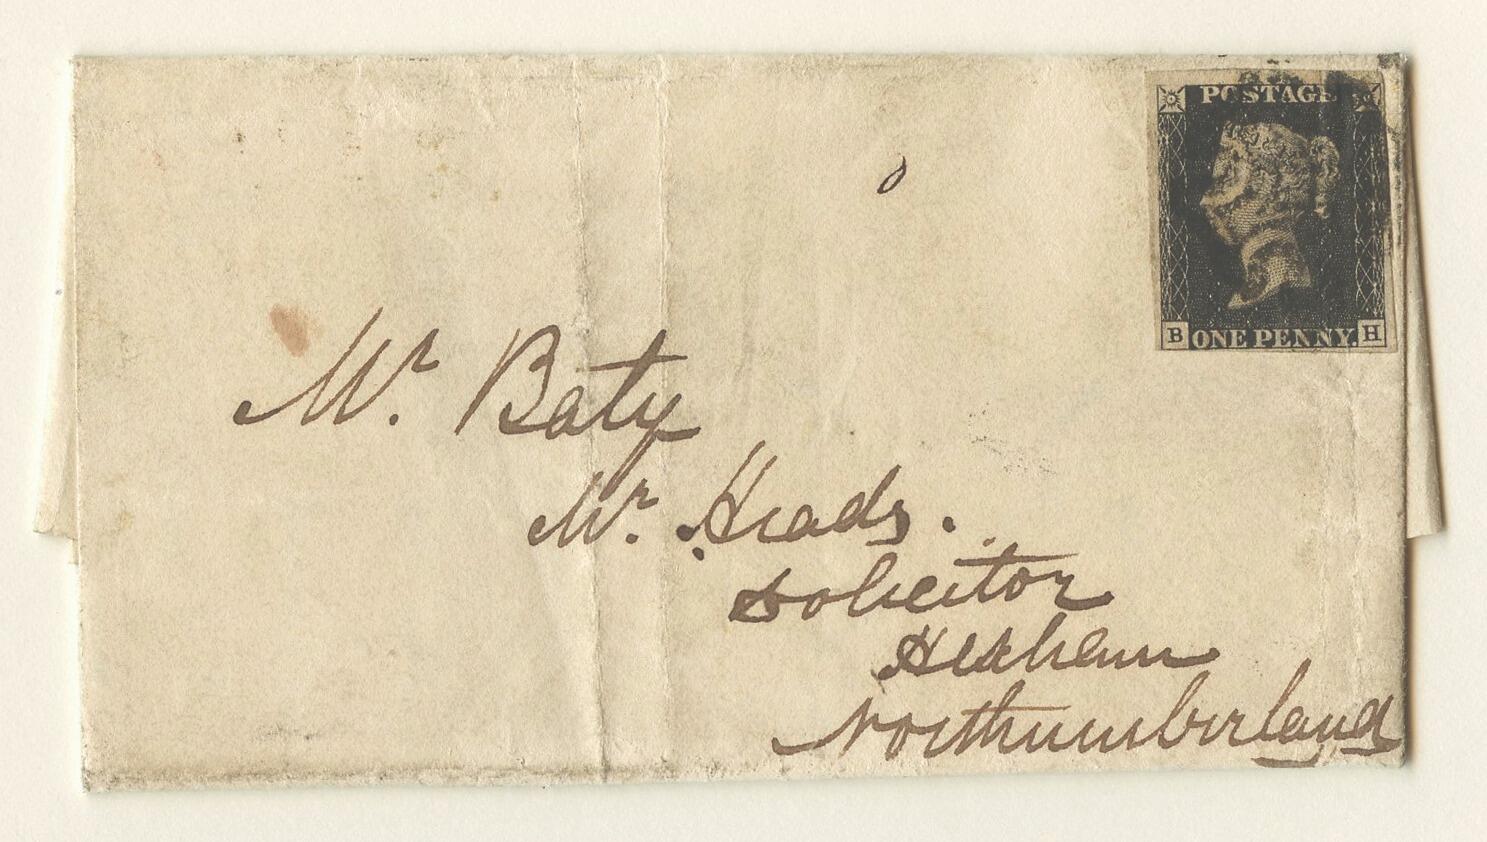 POSTAGE
B ONE PENNY. H
Mr. Baty
Mr. Heads.
Solicitor
Hexham
Northumberland